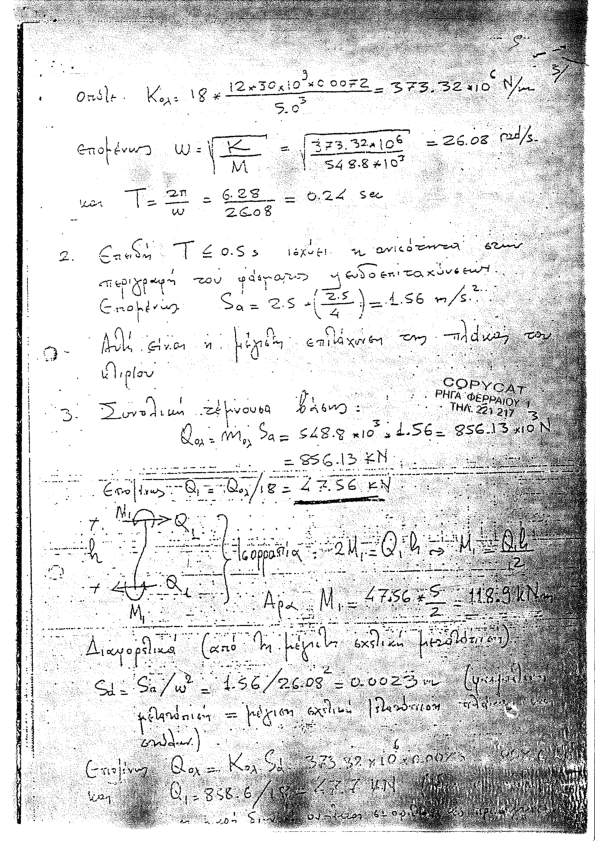 3/
οπότε Κολ = 18 * 12*30*10⁹*0.0072 / 5.0³ = 373.32*10⁶ N/m
επομένως ω = √(K/M) = √(373.32*10⁶ / 548.8*10³) = 26.08 rad/s.
και T = 2π/ω = 6.28/26.08 = 0.24 sec
2. Επειδή T ≤ 0.5 s ισχύει η ανισότητα στην
περιγραφή του φάσματος ψευδοεπιταχύνσεων.
Επομένως Sa = 2.5 * (2.5/4) = 1.56 m/s².
Αυτή είναι η μέγιστη επιτάχυνση της πλάκας του
κτιρίου
COPYCAT
ΡΗΓΑ ΦΕΡΡΑΙΟΥ 1
ΤΗΛ. 221 217
3. Συνολική τέμνουσα βάσης:
Qολ = mολ Sa = 548.8*10³ * 1.56 = 856.13*10³ N
= 856.13 KN
Επομένως Q₁ = Qολ/18 = 47.56 KN
M₁ Q₁
h Ισορροπία: 2M₁ = Q₁h → M₁ = Q₁h/2
Q₁
M₁ Άρα M₁ = 47.56 * 5/2 = 118.9 kNm
Διαφορετικά (από τη μέγιστη σχετική μετατόπιση)
Sd = Sa/ω² = 1.56/26.08² = 0.0023 m
μετατόπιση = μέγιστη σχετική μετατόπιση πλάκας
Επομένως Qολ = Κολ Sd 373.32*10⁶*0.0023
και Q₁ = 858.6/18 = 47.7 KN